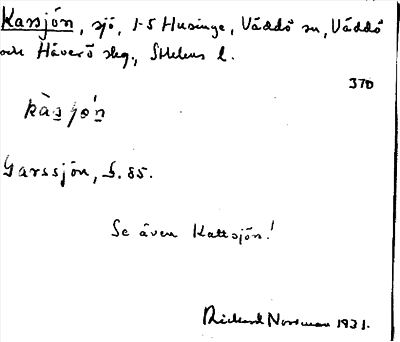 Kassjön, sjö, 1-5 Husinge, Väddö sn, Väddö
och Häverö slg., Sthlms l.
370
kàsjö́n
Garssjön, G. 85.
Se även Kattsjön!
Rickard Norrman 1931.